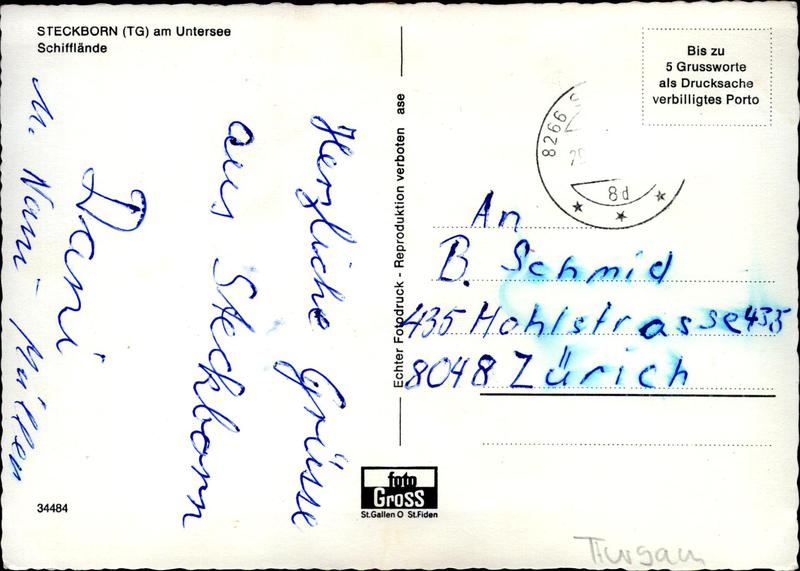 STECKBORN (TG) am Untersee
Schifflände
Bis zu
5 Grussworte
als Drucksache
verbilligtes Porto
8266 S
8d
Herzliche Grüsse
aus Steckborn
Dani
u. Nani
Echter Fotodruck - Reproduktion verboten ase
An
B. Schmid
435 Hohlstrasse 435
8048 Zürich
foto
Gross
St.Gallen O St.Fiden
34484
Thurgau